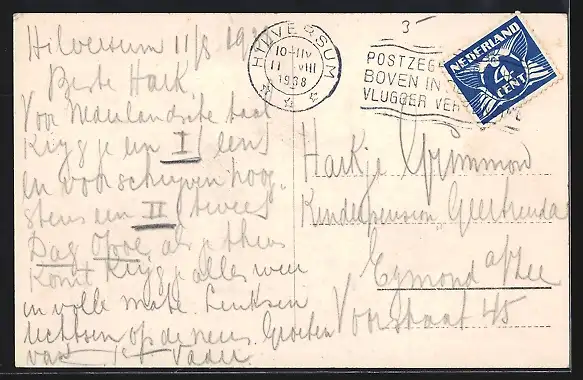 Hilversum 11/8 19
Beste Hark,
Voor Nederlandsche taal
Kryg je een I (een)
en voor schryven hoog-
stens een II (twee)
Dag Opoe, als je thuis
komt kryg je alles weer
in volle mate. Linksen
rechtsen op de neus. Groeten
van Vader
HILVERSUM
10-11V
11 VIII
1938
3-
POSTZEG
BOVEN IN
VLUGGER VER
NEDERLAND
4
CENT
Harkje Grimmon
Kinderpension Geertruida
Egmond a/Zee
Voorstraat 45